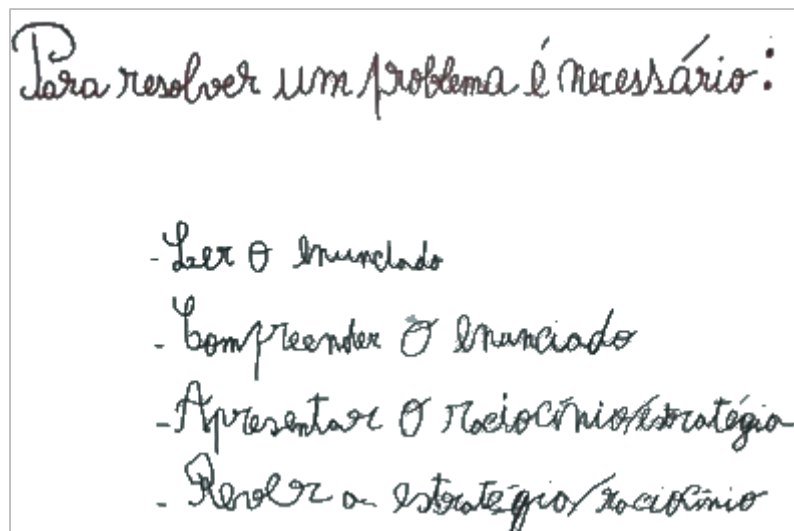 Para resolver um problema é necessário:
- Ler o enunciado
- Compreender o enunciado
- Apresentar o raciocínio/estratégia
- Resolver a estratégia/raciocínio